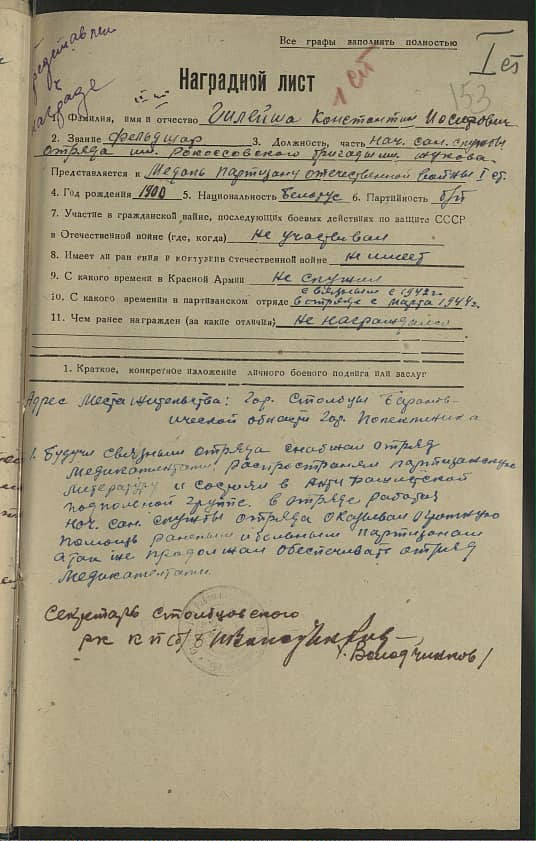 Все графы заполнять полностью
Представлен к награде
I ст
1 ст
153
Наградной лист
Фамилия, имя и отчество Гилейша Константин Иосифович
2. Звание фельдшар 3. Должность, часть нач. сан. службы
отряда им. Рокоссовского бригады им. Жукова
Представляется к Медаль партизану отечественной войны I ст.
4. Год рождения 1900 5. Национальность Беларус 6. Партийность б/п
7. Участие в гражданской вайне, последующих боевых действиях по защите СССР
в Отечественной войне (где, когда) не участвивал
8. Имеет ли ранения и контузии в отечественной войне не имеет
9. С какого времени в Красной Армии не служил
связным с 1942 г.
10. С какого времени в партизанском отряде в отряде с марта 1944 г.
11. Чем ранее награжден (за какие отличия) не награждался
1. Краткое, конкретное изложение личного боевого подвига или заслуг
Адрес места жительства: гор. Столбцы Баранов-
ической области гор. Поликлиника
1. Будучи связным отряда снабжал отряд
медикаментами, распространял партизанскую
литературу и состоял в антифашистской
подпольной группе. В отряде работая
нач. сан. службы отряда оказывал огромную
помощь раненым и больным партизанам
а так же продолжал обеспечивать отряд
медикаментами.
Секретарь Столбцовского
РК КП(б)Б
/Володчинков/